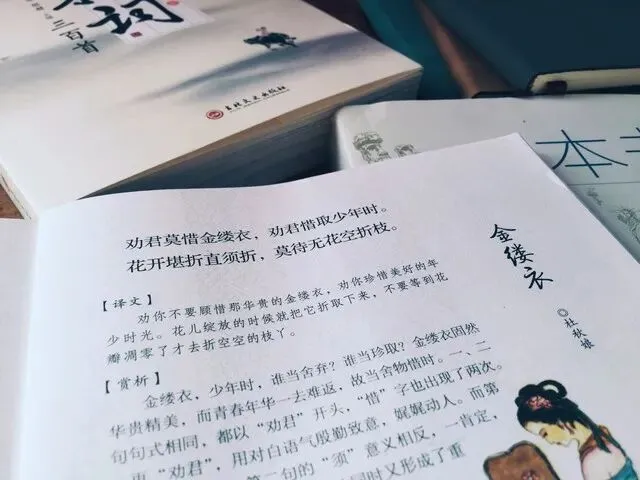 词
三百首
吉林文史出版社
本
劝君莫惜金缕衣，劝君惜取少年时。
花开堪折直须折，莫待无花空折枝。
金缕衣
◎杜秋娘
【译文】
劝你不要顾惜那华贵的金缕衣，劝你珍惜美好的年
少时光。花儿绽放的时候就把它折取下来，不要等到花
瓣凋零了才去折空空的枝丫。
【赏析】
金缕衣，少年时，谁当舍弃？谁当珍取？金缕衣固然
华贵精美，而青春年华一去难返，故当舍物惜时。一、二
句句式相同，都以“劝君”开头，“惜”字也出现了两次。
“劝君”，用对白语气殷勤致意，娓娓动人。而第
第二句的“须”意义相反，一肯定，
同时又形成了重